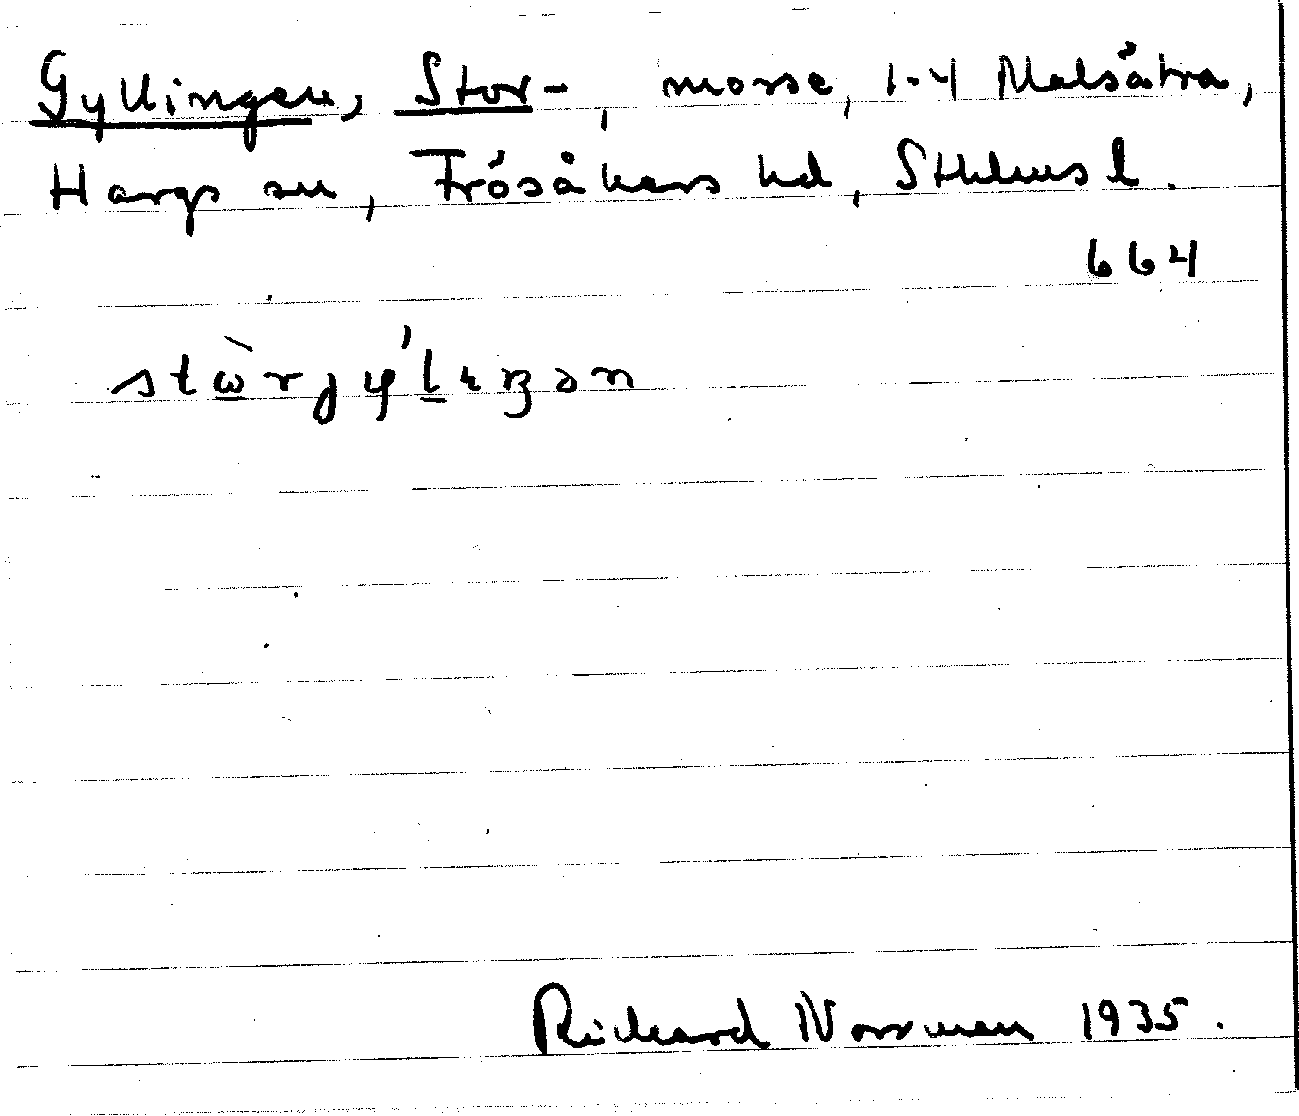 Gyllingen, Stor-, mosse, 1-4 Malsätra,
Hargs sn, Frösåkers hd, Sthlms l.
664
Richard Norrman 1935.